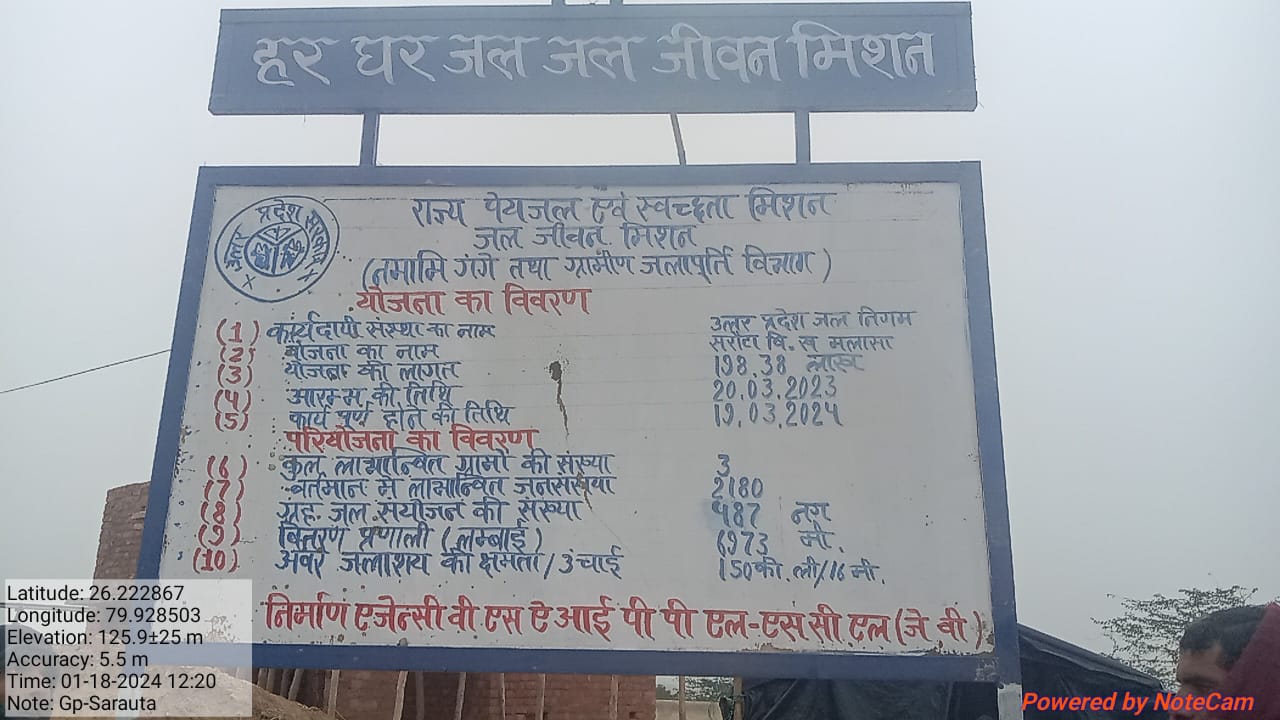 हर घर जल जल जीवन मिशन
उत्तर प्रदेश सरकार
राज्य पेयजल एवं स्वच्छता मिशन
जल जीवन मिशन
(नमामि गंगे तथा ग्रामीण जलापूर्ति विभाग)
योजना का विवरण
(1) कार्यदायी संस्था का नाम उत्तर प्रदेश जल निगम
(2) योजना का नाम सरौटा वि. ख मलासा
(3) योजना की लागत 198.38 लाख
(4) आरम्भ की तिथि 20.03.2023
(5) कार्य पूर्ण होने की तिथि 19.03.2024
परियोजना का विवरण
(6) कुल लाभान्वित ग्रामों की संख्या 3
(7) वर्तमान में लाभान्वित जनसंख्या 2180
(8) गृह जल संयोजन की संख्या 487 नग
(9) वितरण प्रणाली (लम्बाई) 6973 मी.
(10) अवर जलाशय की क्षमता/उंचाई 150 की.ली/16 मी.
निर्माण एजेन्सी वी एस ऐ आई पी पी एल-एस सी एल (जे वी)
Latitude: 26.222867
Longitude: 79.928503
Elevation: 125.9±25 m
Accuracy: 5.5 m
Time: 01-18-2024 12:20
Note: Gp-Sarauta
Powered by NoteCam